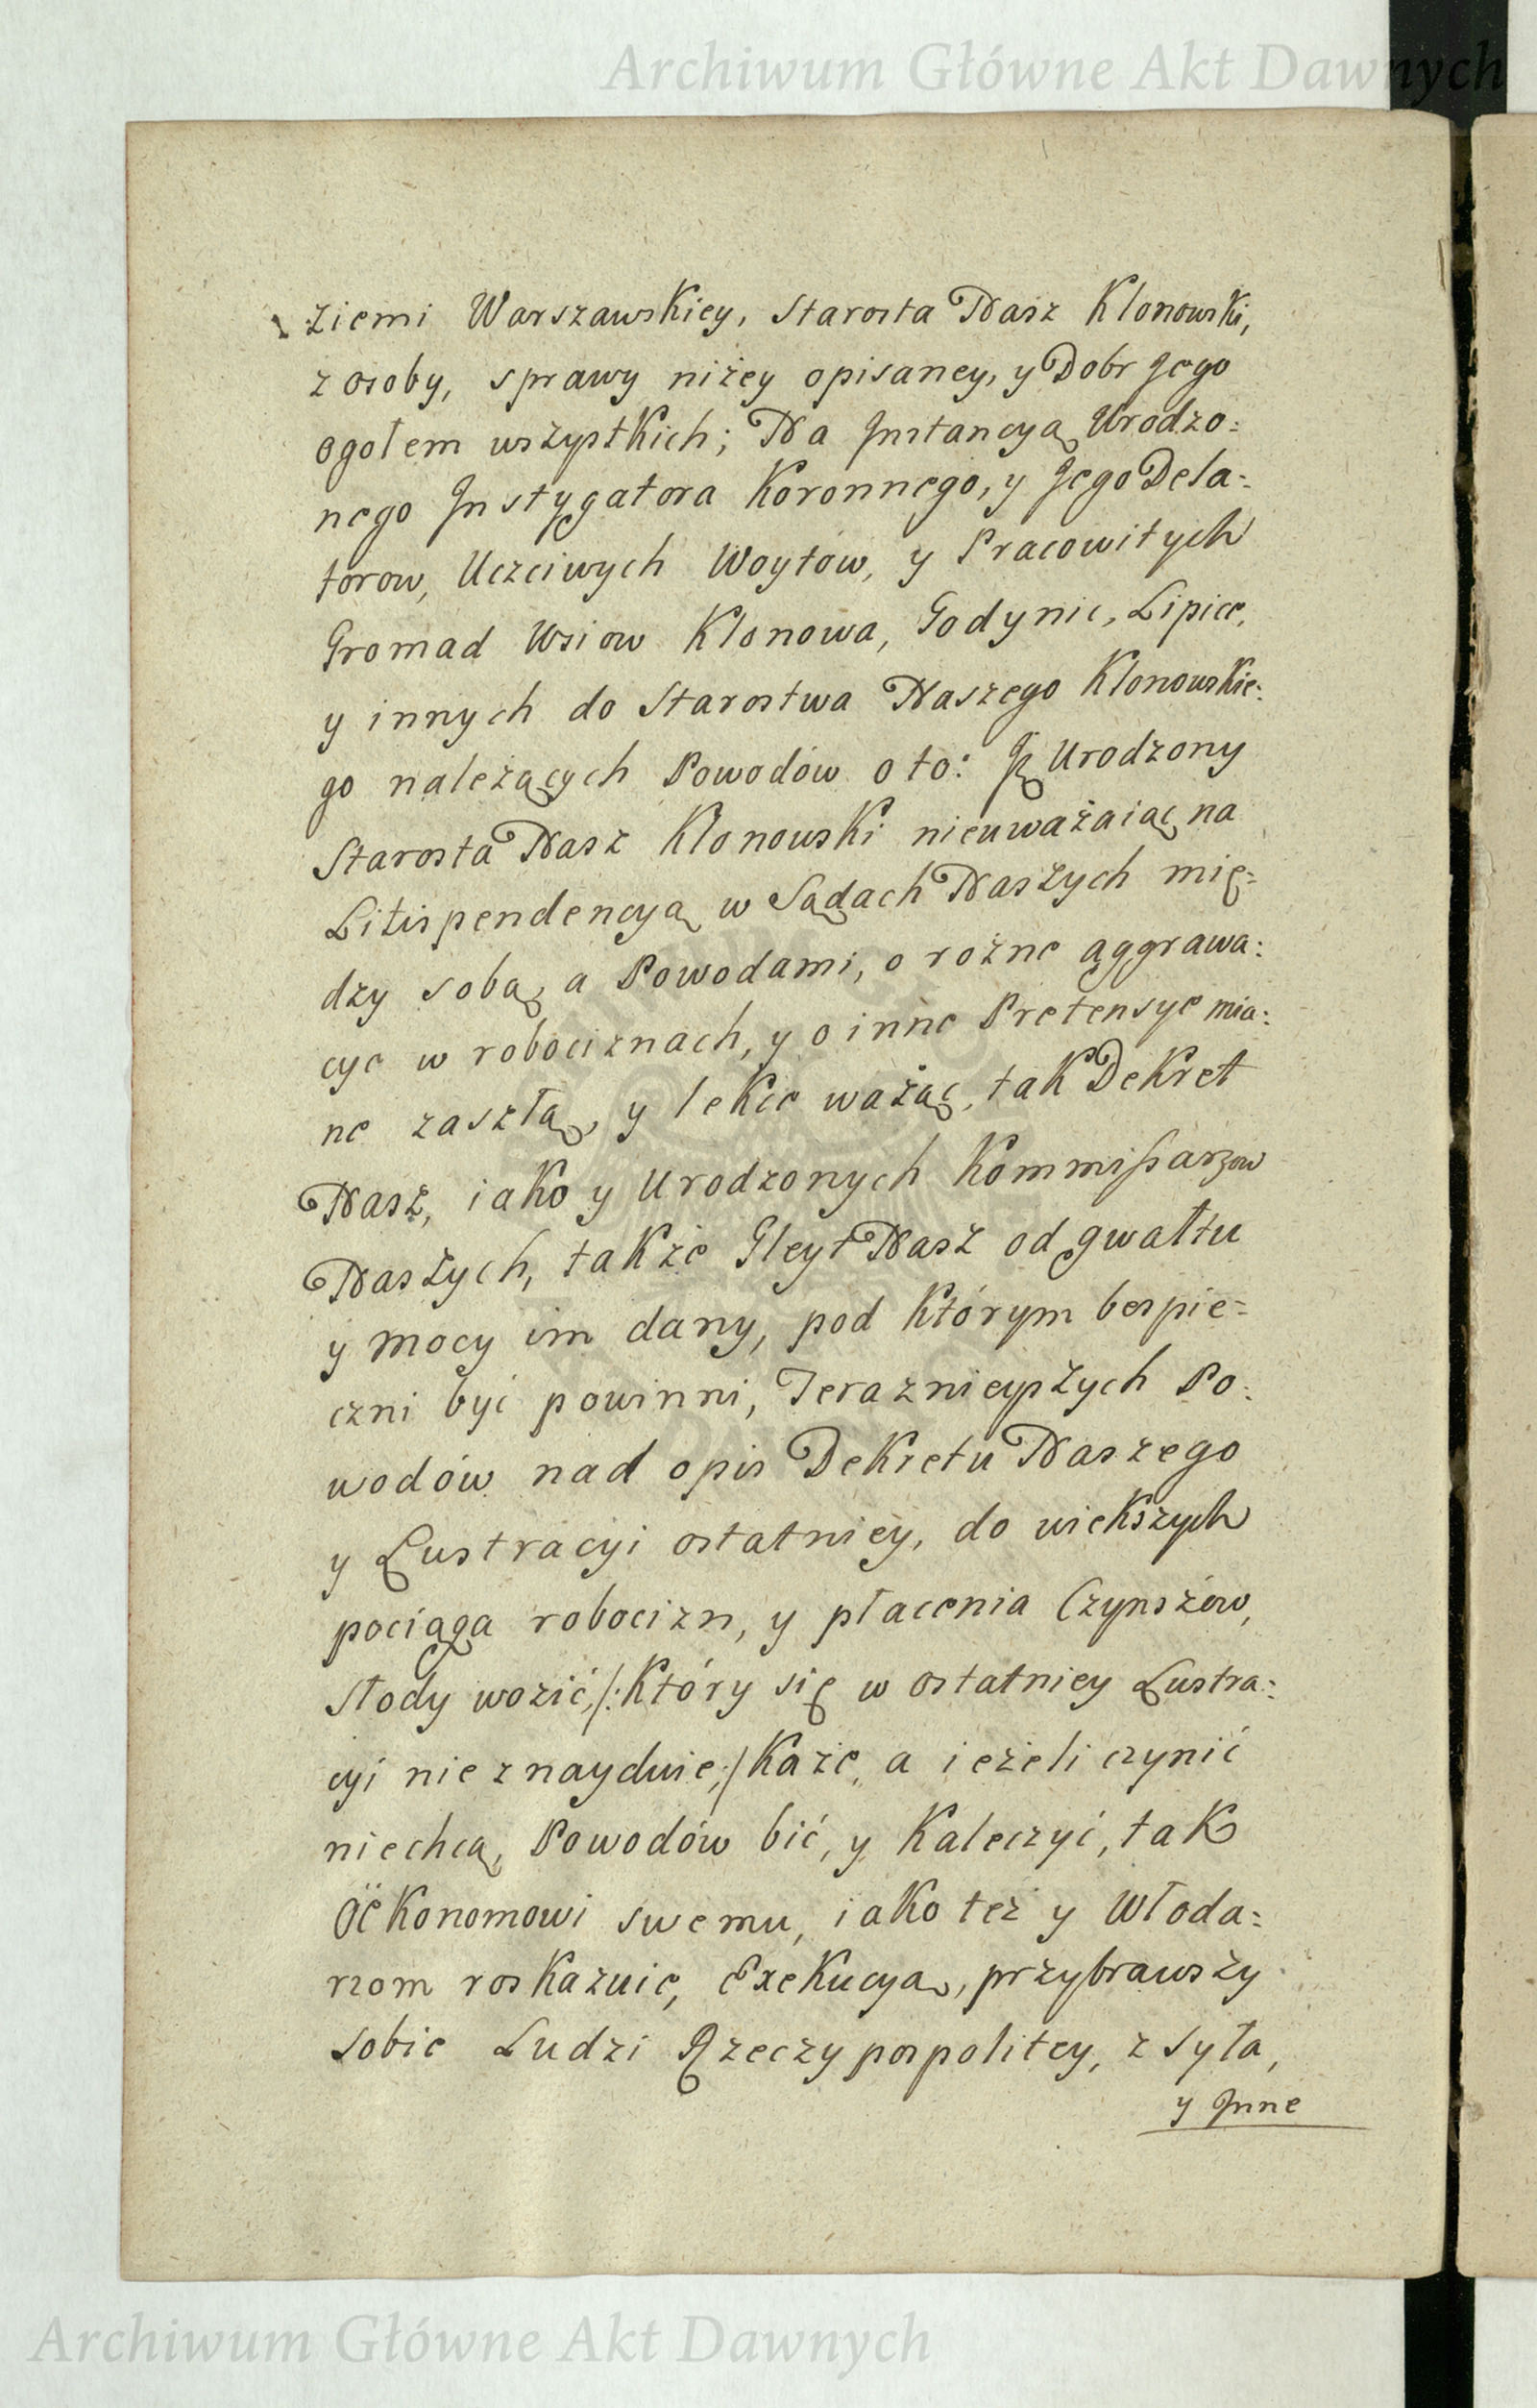 Archiwum Główne Akt Dawnych
Ziemi Warszawskiey, Starosta Nasz Klonowski,
z osoby, sprawy niżey opisaney, y Dobr Jego
ogołem wszystkich; Na Jnstancyą Urodzo=
nego Jnstygatora Koronnego, y Jego Dela=
torow, Uczciwych Woytów, y Pracowitych
Gromad Wsiow Klonowa, Godynic, Lipice,
y innych do Starostwa Naszego Klonowskie=
go należących Powodów o to: Jż Urodzony
Starosta Nasz Klonowski nieuważaiąc na
Litispendencyą w Sądach Naszych mię=
dzy sobą, a Powodami, o rożne aggrawa=
cye w robociznach, y o inne Pretensye mia=
ne zaszłą, y lekce ważąc, tak Dekret
Nasz, iako y Urodzonych Kommissarzow
Naszych, także Gleyt Nasz od gwałtu
y mocy im dany, pod którym bespie=
czni być powinni, Teraznieyszych Po=
wodów nad opis Dekretu Naszego
y Lustracyi ostatniey, do wiekszych
pociąga robocizn, y płacenia Czynszów,
Słody wozić,/: Który się w ostatniey Lustra=
cyi nieznayduie,:/ Każe, a ieżeli czynić
niechcą, Powodów bić, y Kaleczyć, tak
Oëkonomowi swemu, iako też y Włoda=
rzom roskazuie, Exekucyą, przybrawszy
sobie Ludzi Rzeczypospolitey, zsyła,
y Jnne
Archiwum Główne Akt Dawnych